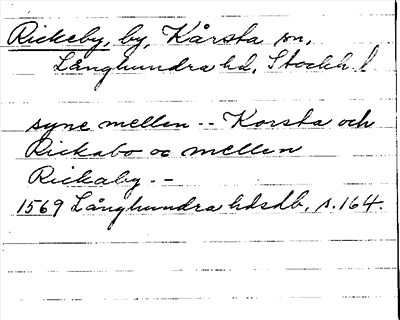 Rickeby, by, Kårsta sn,
Långhundra hd, Stockh. l
syne mellen -- Korsta och
Rickabo oc mellen
Rickaby --
1569 Långhundra hdsdb, s. 164.